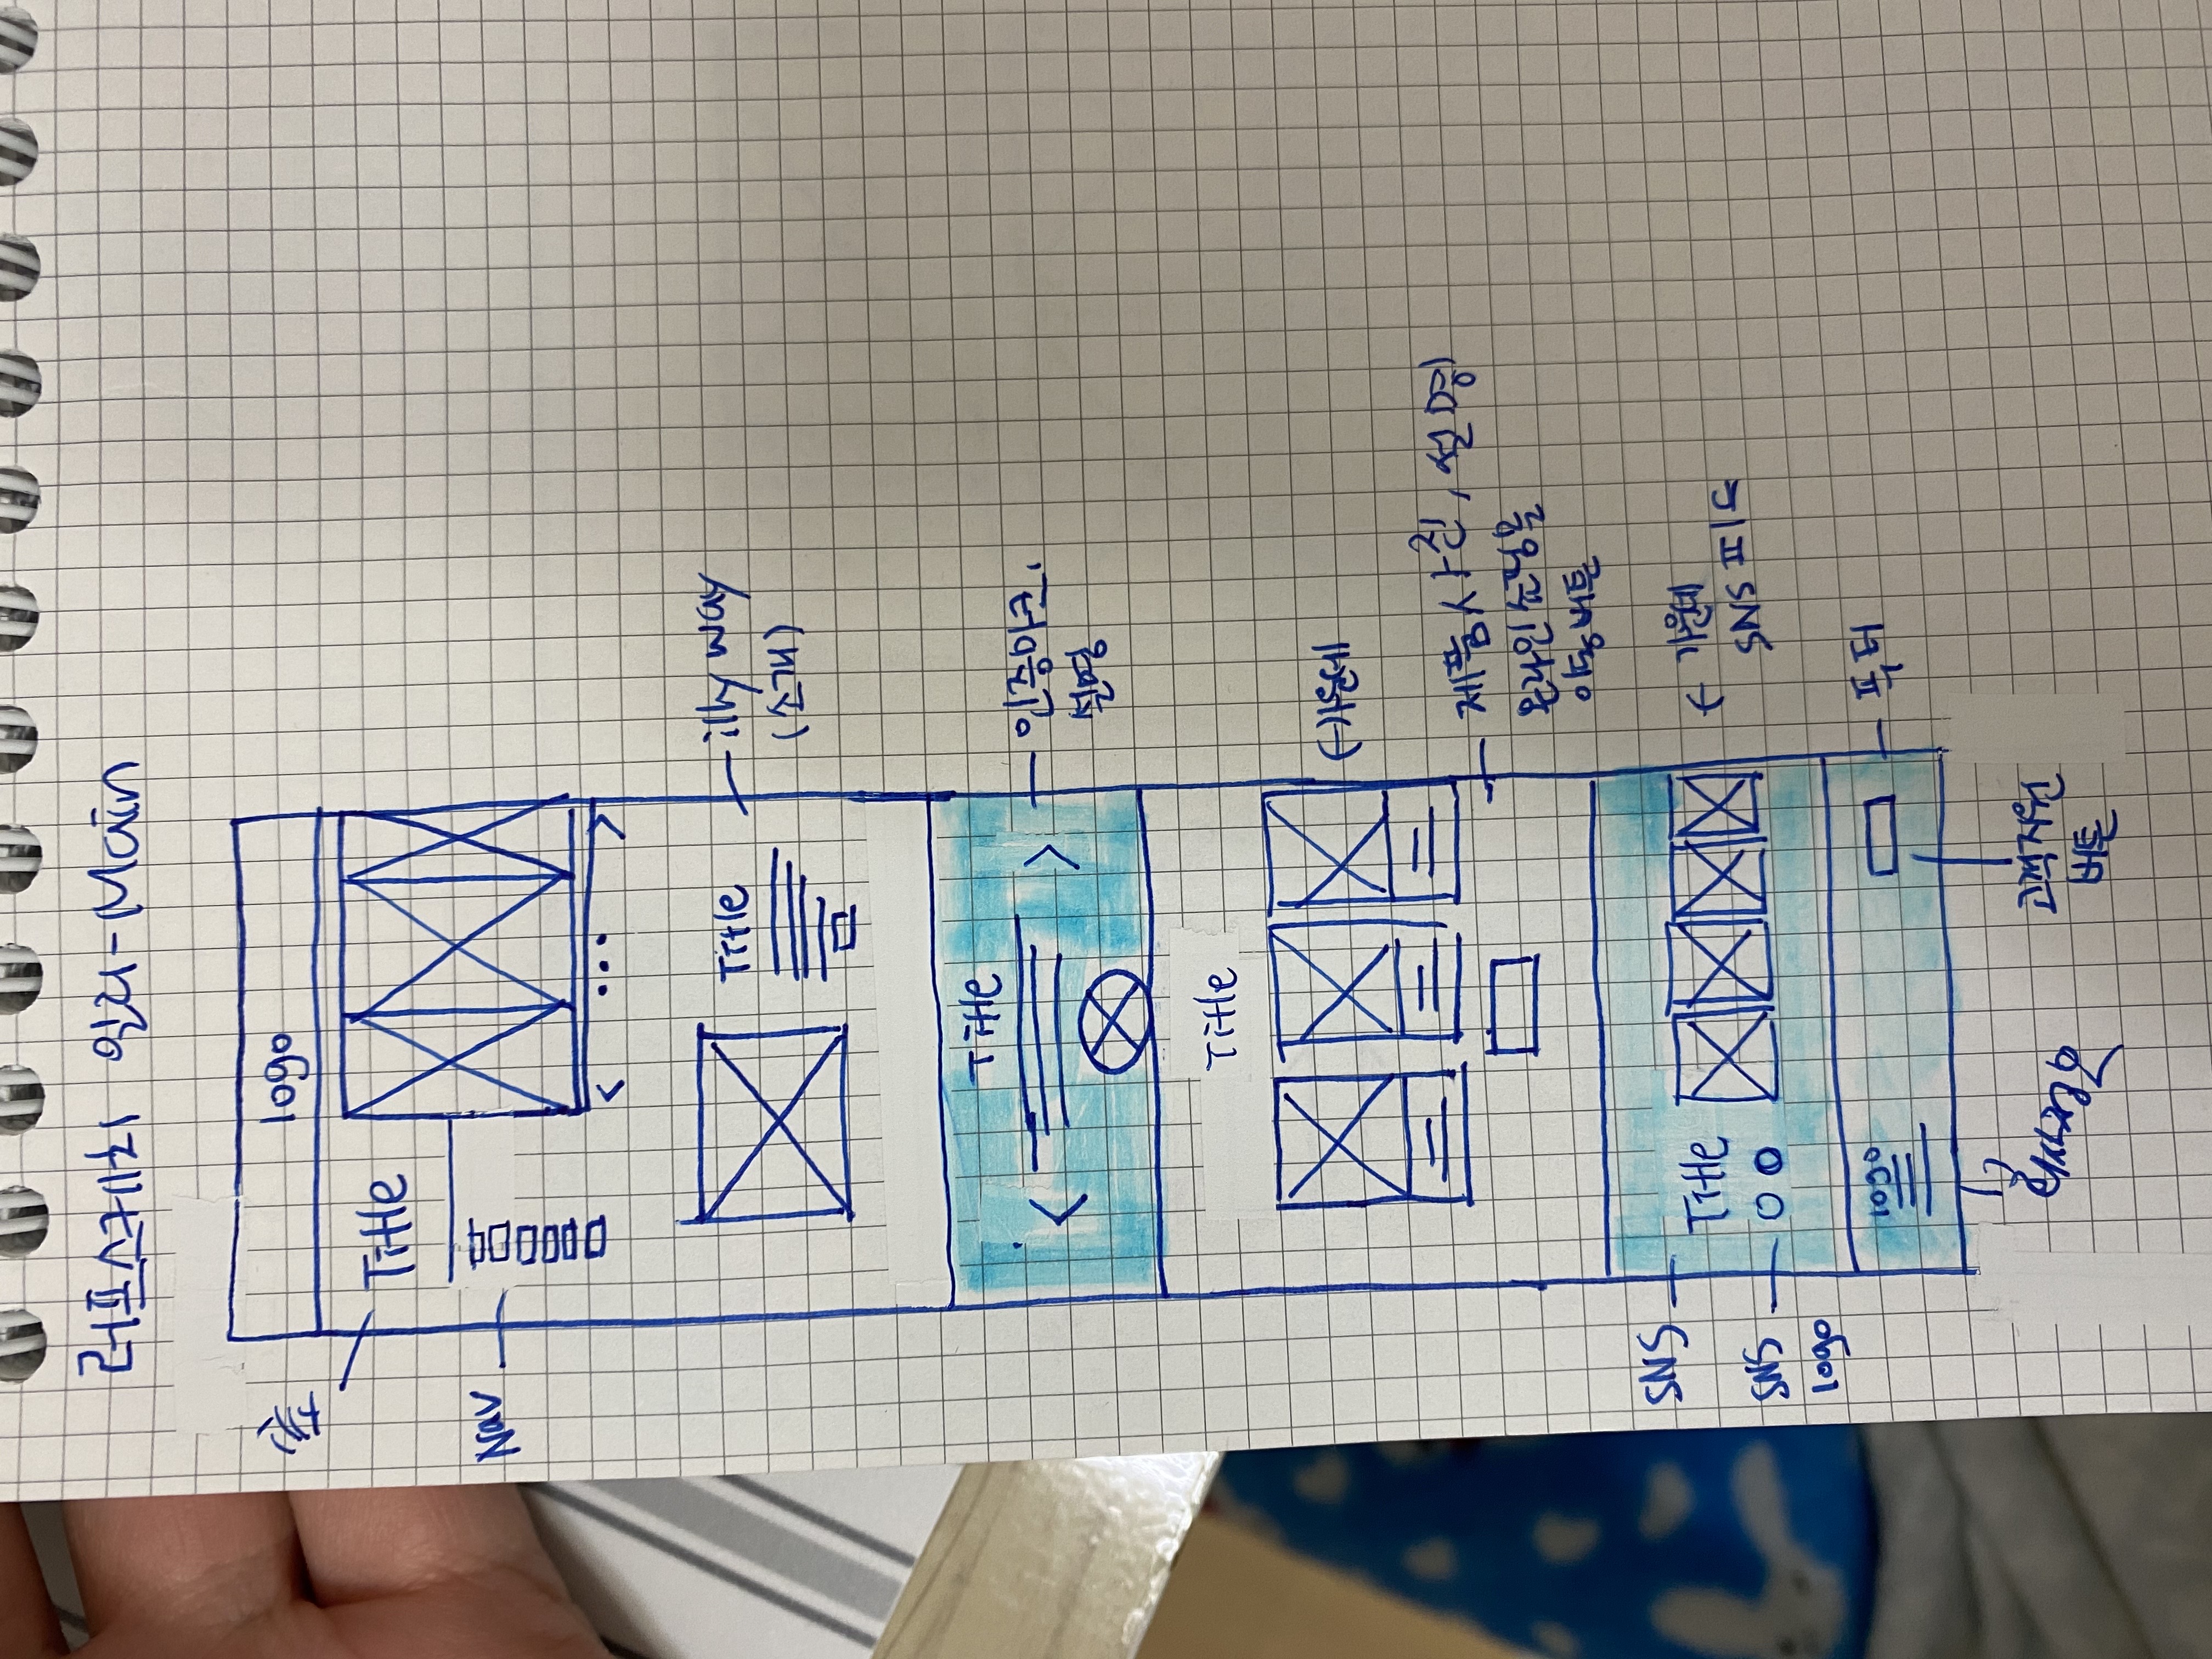 러프스케치 일리-Main
logo
홈
Title
Nav
< ... >
Title
illy way
(소개)
Title
< >
인증마크,
설명
Title
가운데
제품사진, 설명
온라인쇼핑몰
이동버튼
SNS
Title
가운데
SNS 피드
SNS
logo
logo
푸터
고객지원
버튼